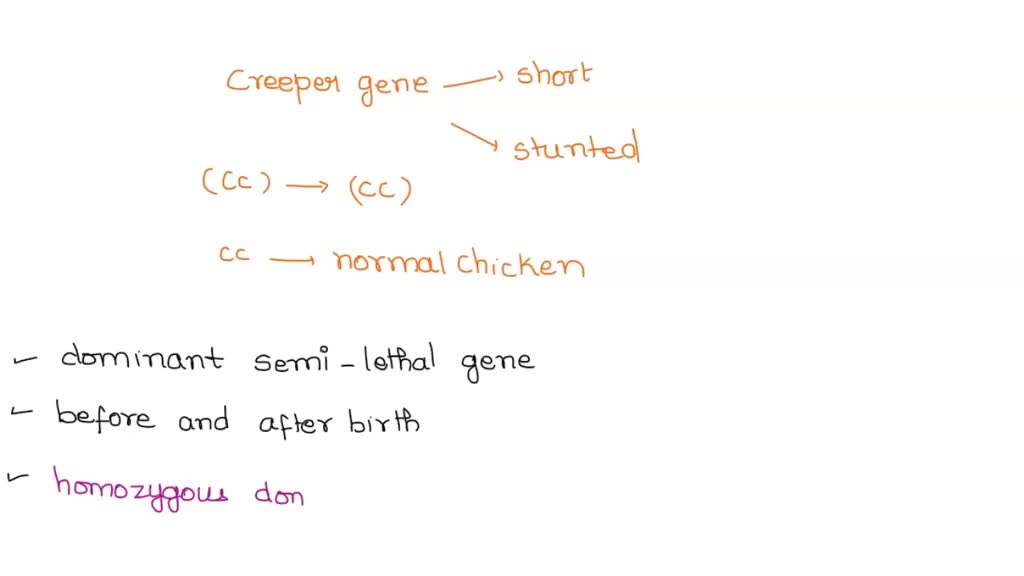 Creeper gene → short
→ stunted
(Cc) → (CC)
cc → normal chicken
✓ dominant semi-lethal gene
✓ before and after birth
✓ homozygous don